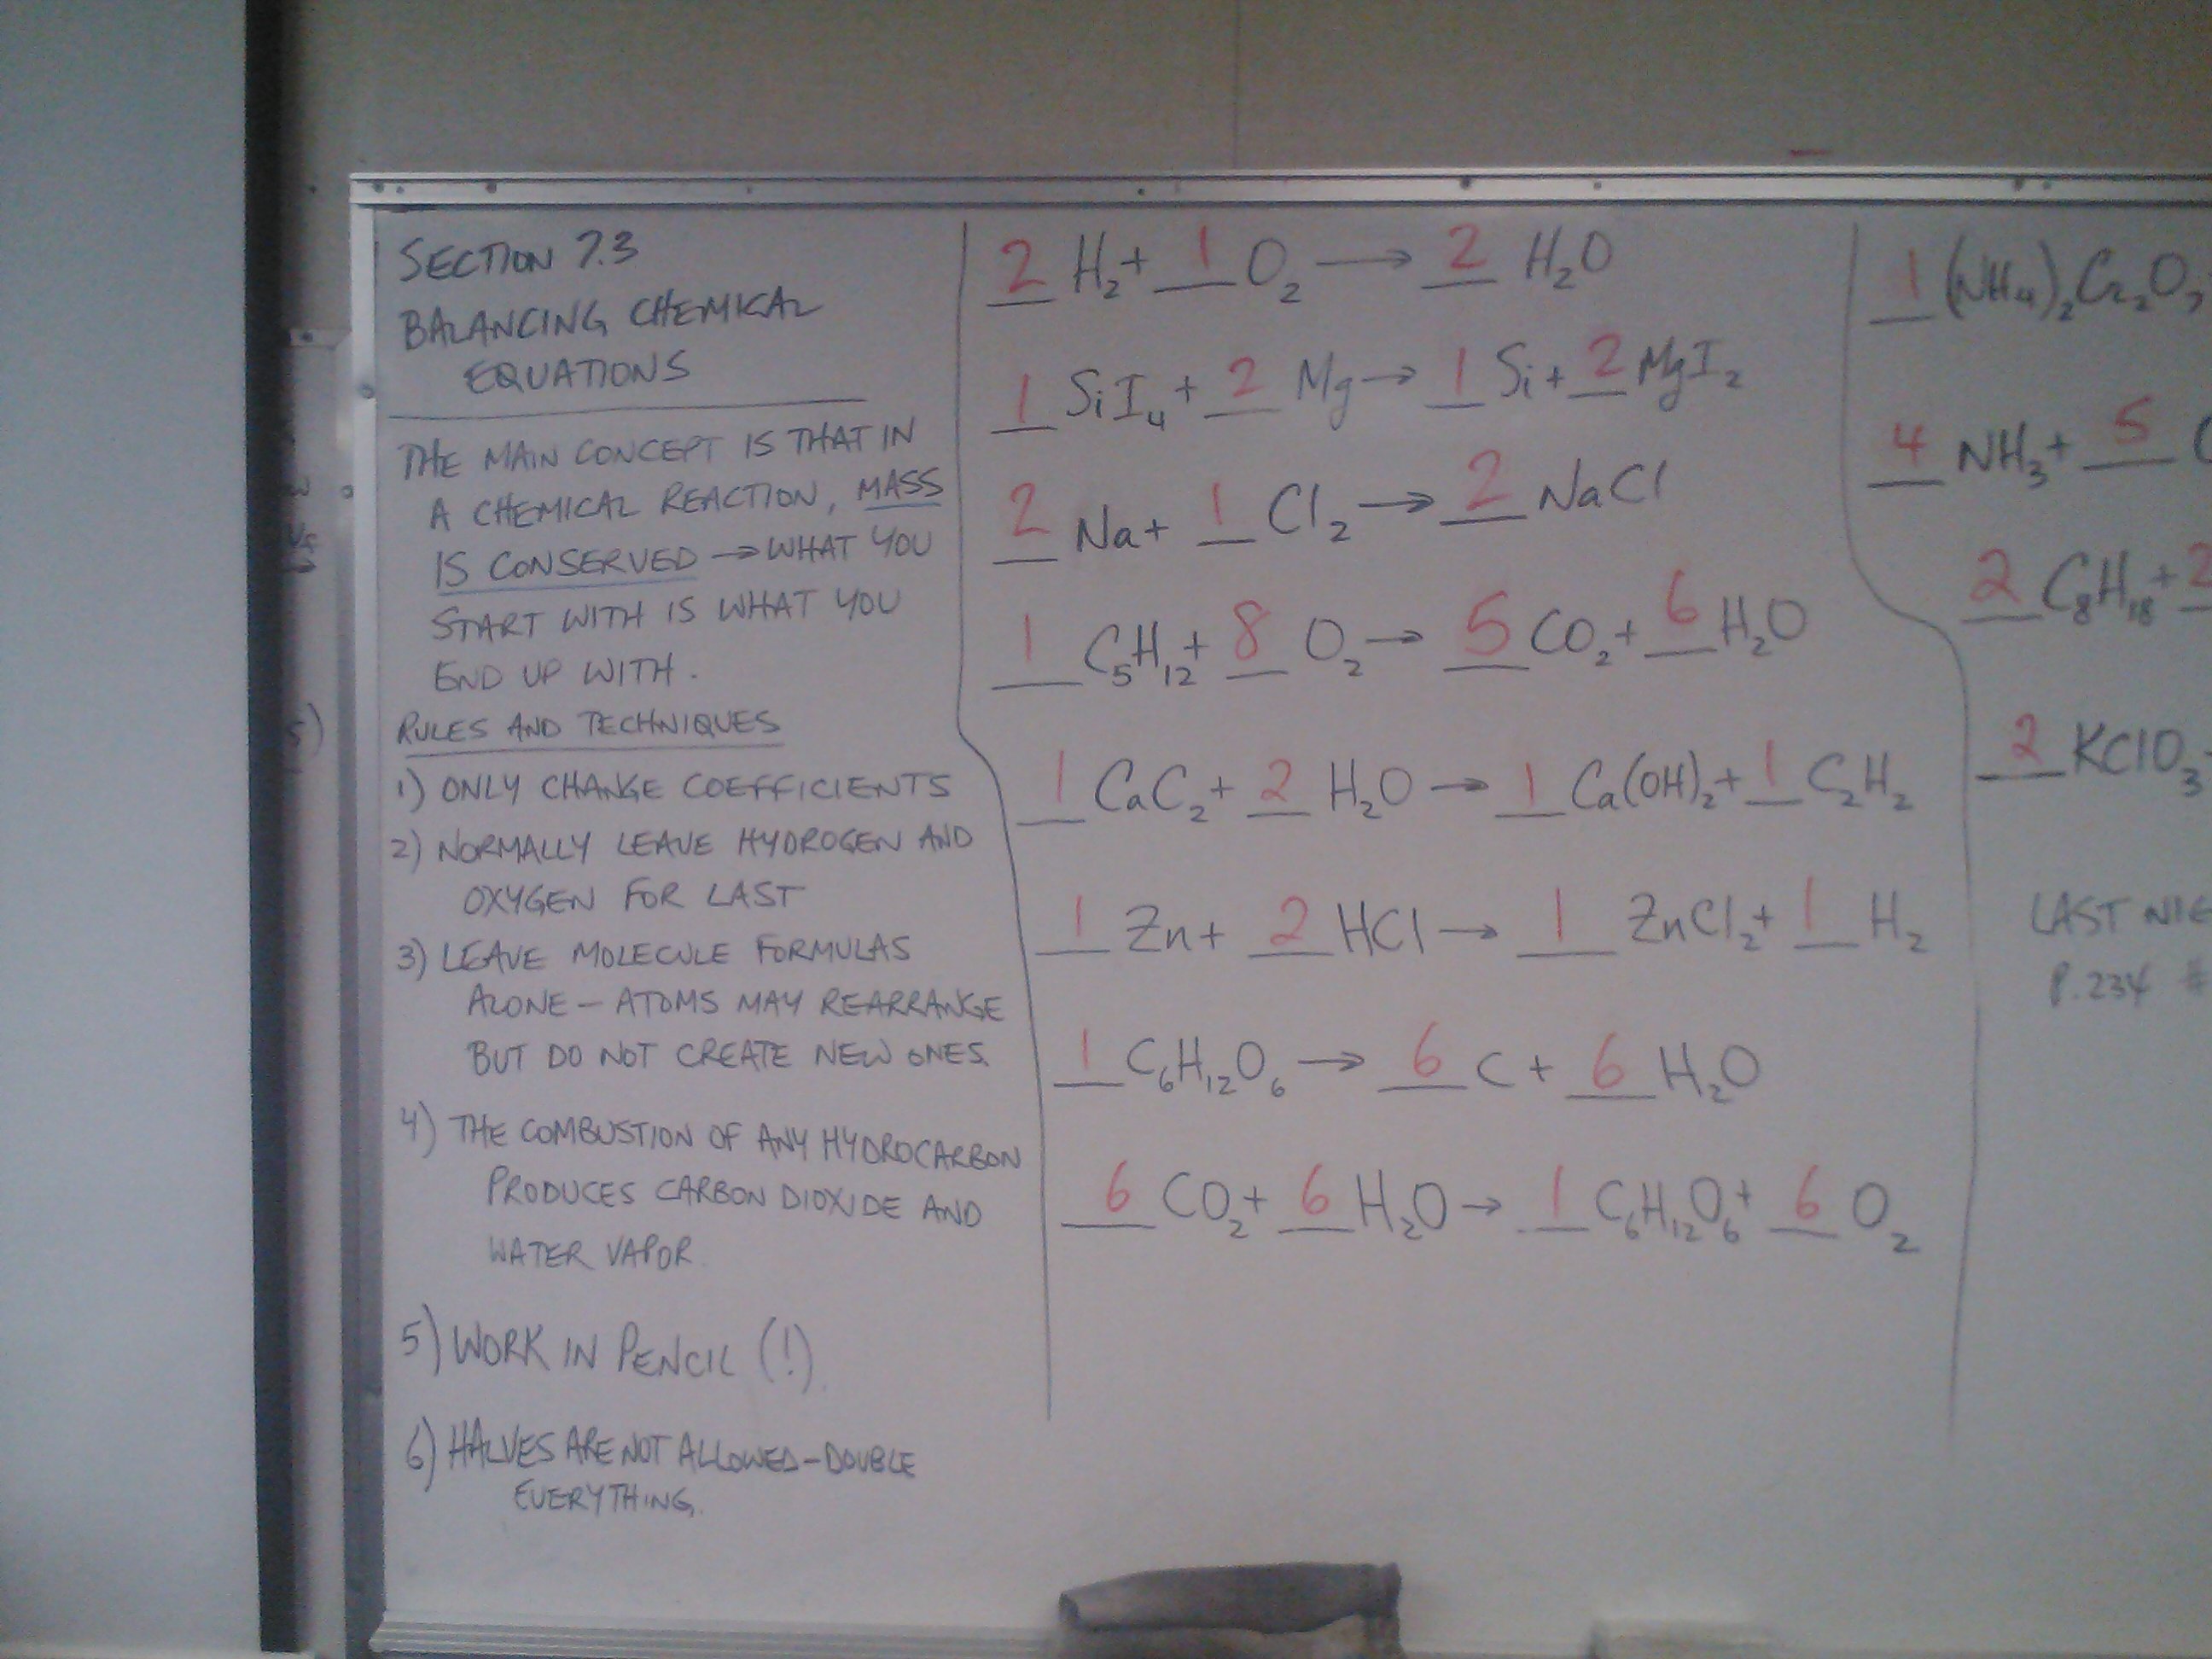 SECTION 7.3
BALANCING CHEMICAL
EQUATIONS
THE MAIN CONCEPT IS THAT IN
A CHEMICAL REACTION, MASS
IS CONSERVED → WHAT YOU
START WITH IS WHAT YOU
END UP WITH.
RULES AND TECHNIQUES
1) ONLY CHANGE COEFFICIENTS
2) NORMALLY LEAVE HYDROGEN AND
OXYGEN FOR LAST
3) LEAVE MOLECULE FORMULAS
ALONE – ATOMS MAY REARRANGE
BUT DO NOT CREATE NEW ONES.
4) THE COMBUSTION OF ANY HYDROCARBON
PRODUCES CARBON DIOXIDE AND
WATER VAPOR.
5) WORK IN PENCIL (!)
6) HALVES ARE NOT ALLOWED – DOUBLE
EVERYTHING.
2 H₂ + 1 O₂ → 2 H₂O
1 SiI₄ + 2 Mg → 1 Si + 2 MgI₂
2 Na + 1 Cl₂ → 2 NaCl
1 C₅H₁₂ + 8 O₂ → 5 CO₂ + 6 H₂O
1 CaC₂ + 2 H₂O → 1 Ca(OH)₂ + 1 C₂H₂
1 Zn + 2 HCl → 1 ZnCl₂ + 1 H₂
1 C₆H₁₂O₆ → 6 C + 6 H₂O
6 CO₂ + 6 H₂O → 1 C₆H₁₂O₆ + 6 O₂
1 (NH₄)₂Cr₂O₇
4 NH₃ + 5
2 C₈H₁₈ + 2
2 KClO₃
LAST
P.234 #